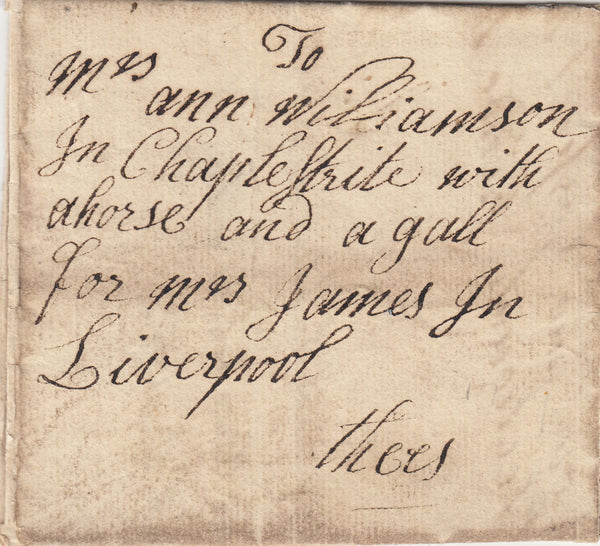 To
Mrs
ann Williamson
In Chaple Strite with
ahorse and a gall
for mrs James In
Liverpool
thees